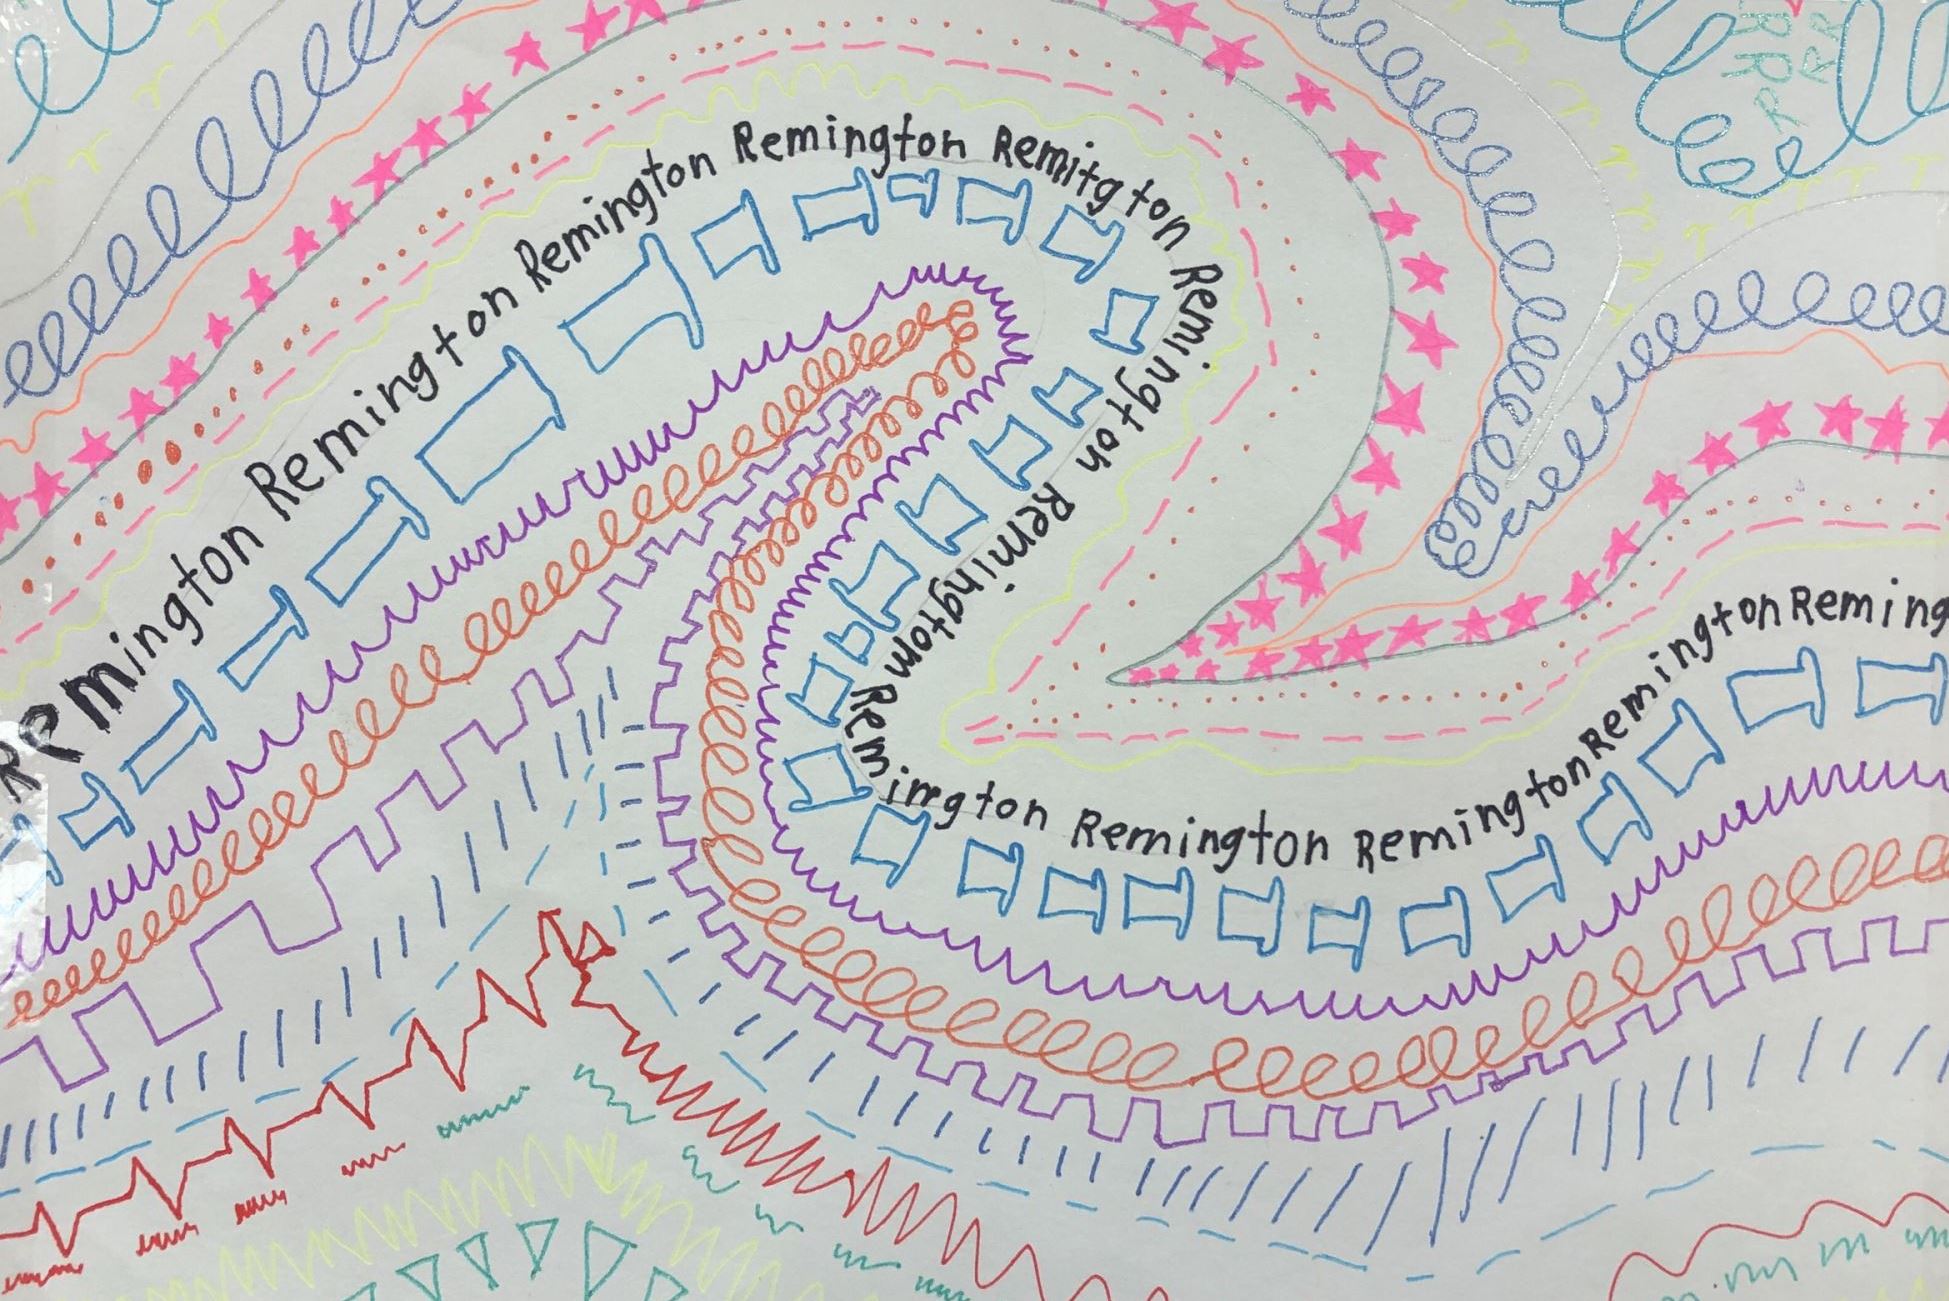 Remington Remington Remington Remington Remitgton Remington Remingtom Remington Remington Remington Remington Reming
R R R
R R